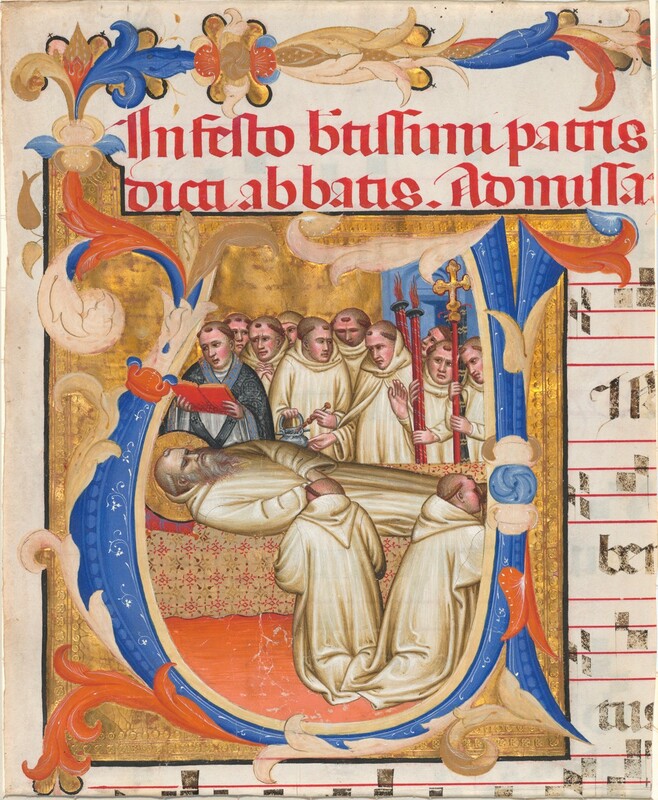 In festo b̄tissimi patris
dicti abbatis. Ad missa
ber
tus